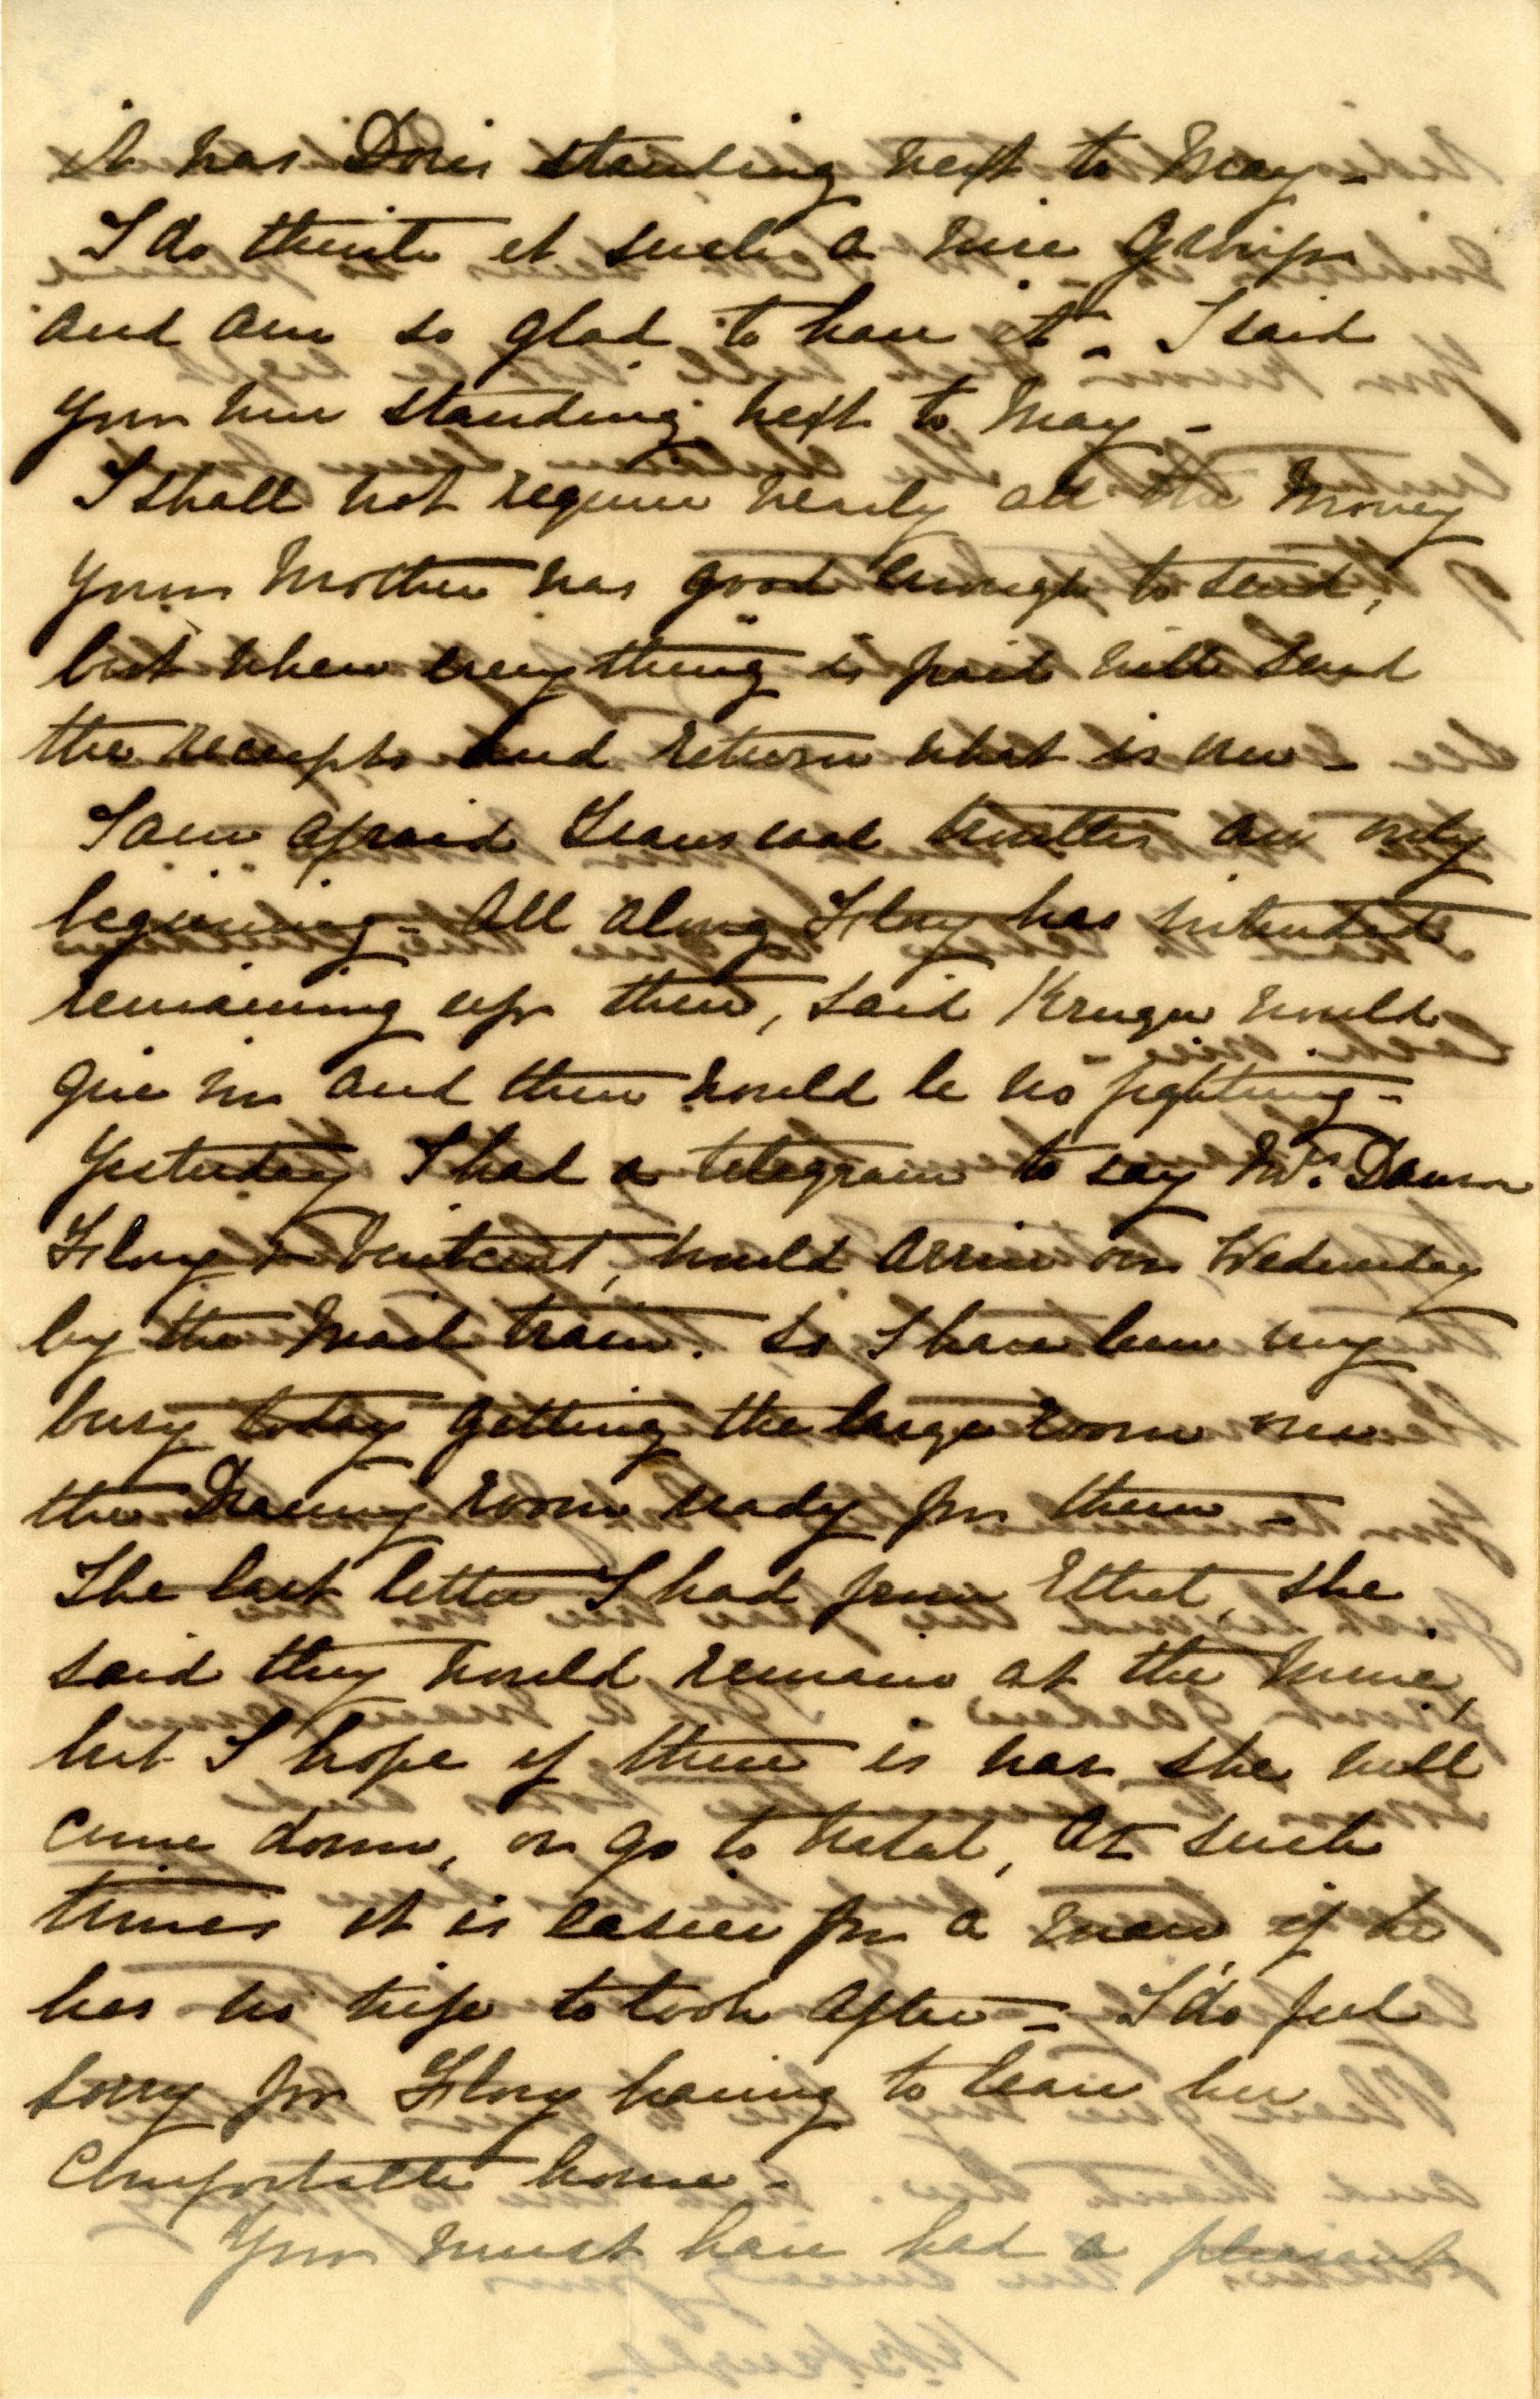 it was Doris standing next to May -
I do think it such a nice group
and am so glad to have it - I said
you were standing next to May -
I shall not require nearly all the money
your Mother was good enough to send,
but when everything is paid will send
the receipts and return what is over -
I am afraid Transvaal troubles are only
beginning - All along Flory has intended
remaining up there, said Kruger would
give in and there would be no fighting -
Yesterday I had a telegram to say Mr. Dawson
Flory & would arrive on Wednesday
by the Mail train. So I have been very
busy today getting the large room near
the Drawing room ready for them -
The last letter I had from Ethel, she
said they would remain at the Mine,
but I hope if there is war she will
come down, or go to Natal, at such
times it is easier for a man if he
has no wife to look after - I do feel
sorry for Flory having to leave her
comfortable home -
You must have had a pleasant